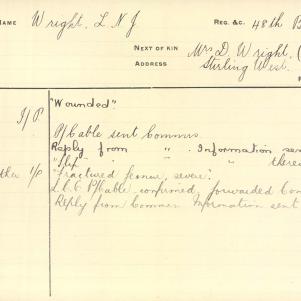 NAME Wright, L N J REG. &C. 48th B
NEXT OF KIN Mr. D. Wright, (
ADDRESS Stirling West.
I/P "Wounded".
P/Cable sent Commrs.
Reply from " Information sen
" " theres
1/P "Fractured femur, severe".
P/Cable confirmed, forwarded Com
Reply from Commrs Information sent